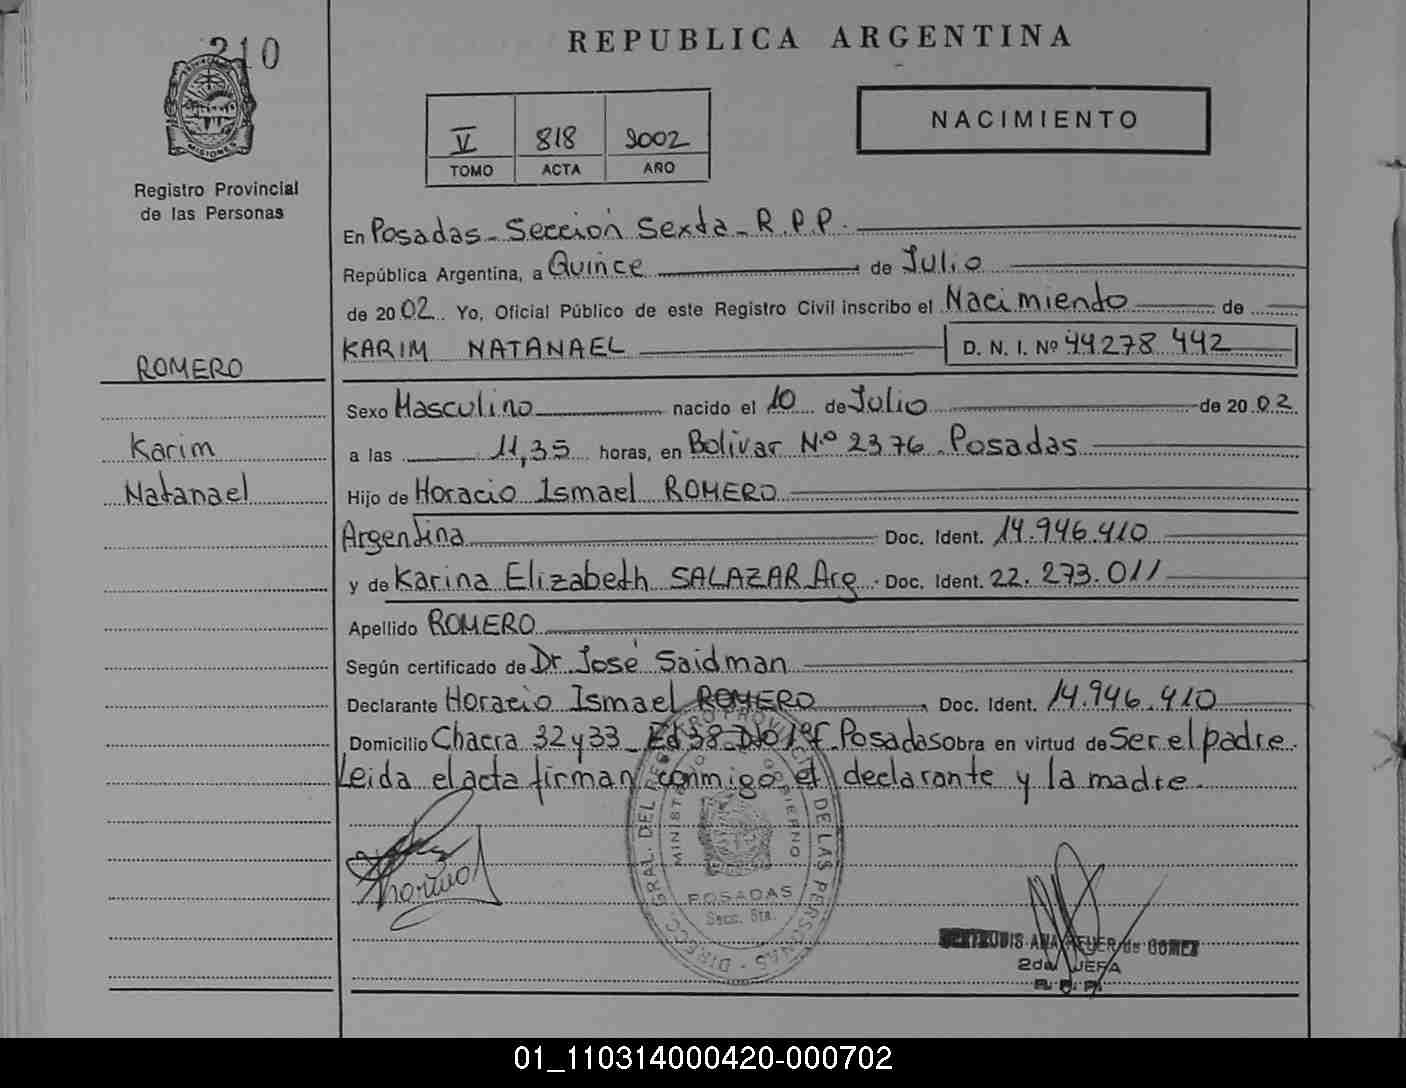 210
REPUBLICA ARGENTINA
MISIONES
Registro Provincial
de las Personas
V 818 2002
TOMO ACTA AÑO
NACIMIENTO
En Posadas - Sección Sexta - R.P.P.
República Argentina, a Quince de Julio
de 2002 Yo, Oficial Público de este Registro Civil inscribo el Nacimiento de
KARIM NATANAEL D. N. I. Nº 44278 442
ROMERO
Karim
Natanael
Sexo Masculino nacido el 10 de Julio de 20 02
a las 11,35 horas, en Bolívar Nº 2376. Posadas
Hijo de Horacio Ismael ROMERO
Argentina Doc. Ident. 14.946.410
y de Karina Elizabeth SALAZAR Arg. Doc. Ident. 22.273.011
Apellido ROMERO
Según certificado de Dr. José Saidman
Declarante Horacio Ismael ROMERO Doc. Ident. 14.946.410
Domicilio Chacra 32 y 33 Posadas Obra en virtud de Ser el padre.
Leida el acta firman conmigo el declarante y la madre.
DIRECC. GRAL. DEL REGISTRO PROVINCIAL DE LAS PERSONAS
MINISTERIO GOBIERNO
POSADAS
Secc. 6ta.
ANA de GOMEZ
2da JEFA
R. P. P.
01_110314000420-000702